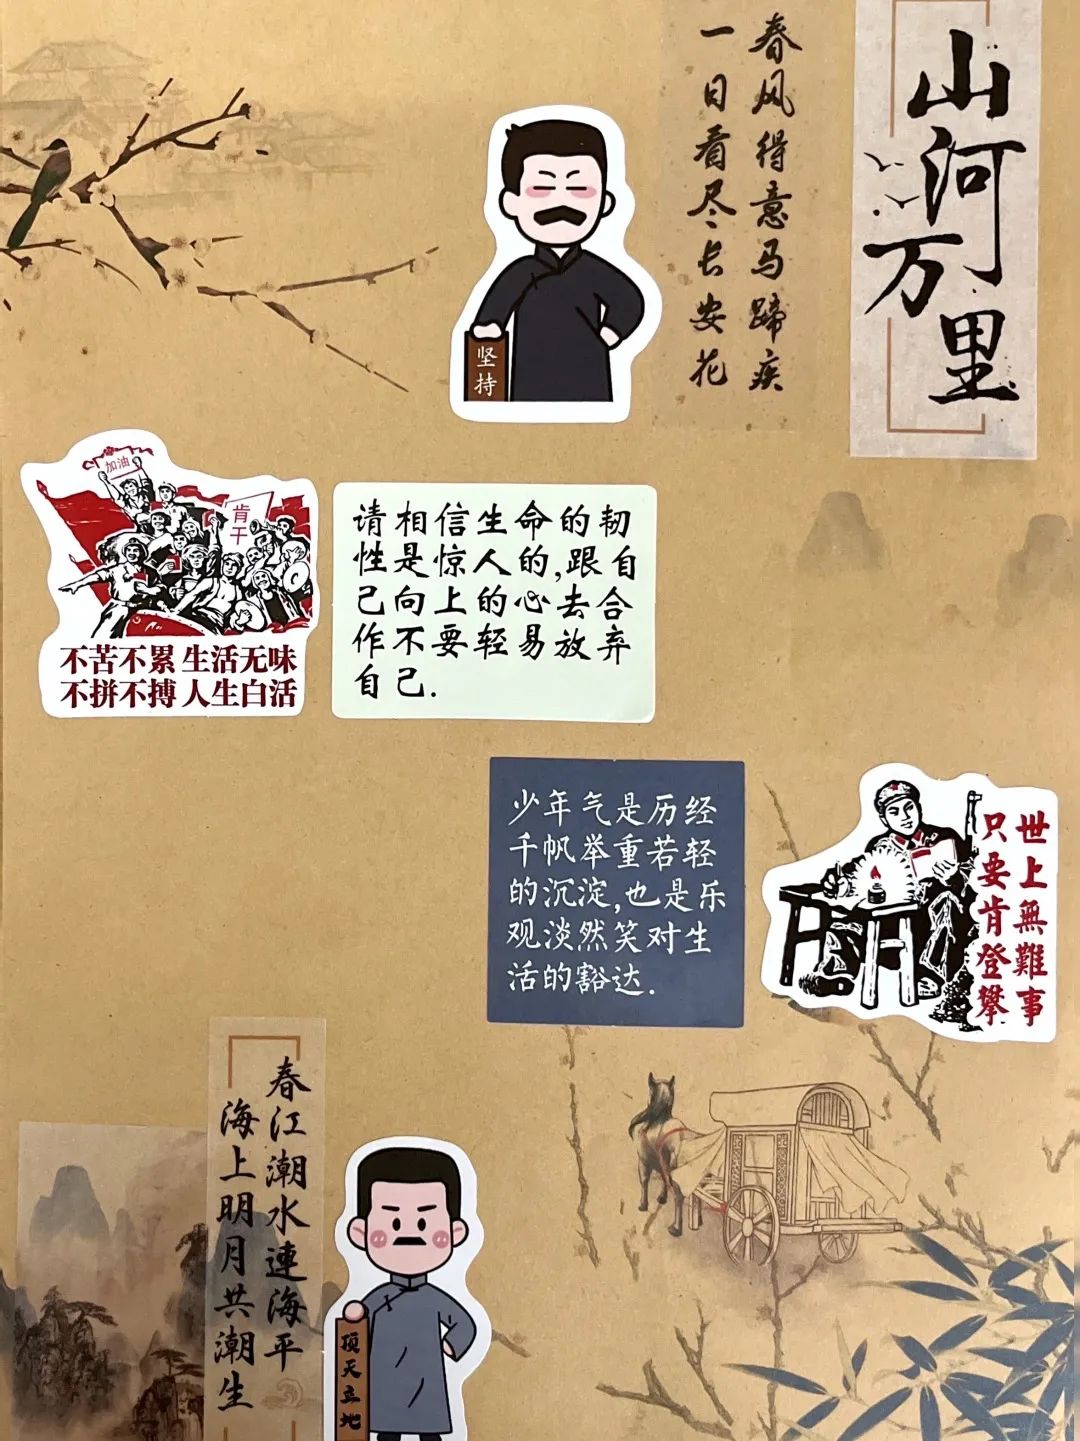 山河万里
春风得意马蹄疾
一日看尽长安花
坚持
加油
肯干
不苦不累 生活无味
不拼不搏 人生白活
请相信生命的韧
性是惊人的,跟自
己向上的心去合
作不要轻易放弃
自己.
少年气是历经
千帆举重若轻
的沉淀,也是乐
观淡然笑对生
活的豁达.
世上無難事
只要肯登攀
春江潮水連海平
海上明月共潮生
顶天立地